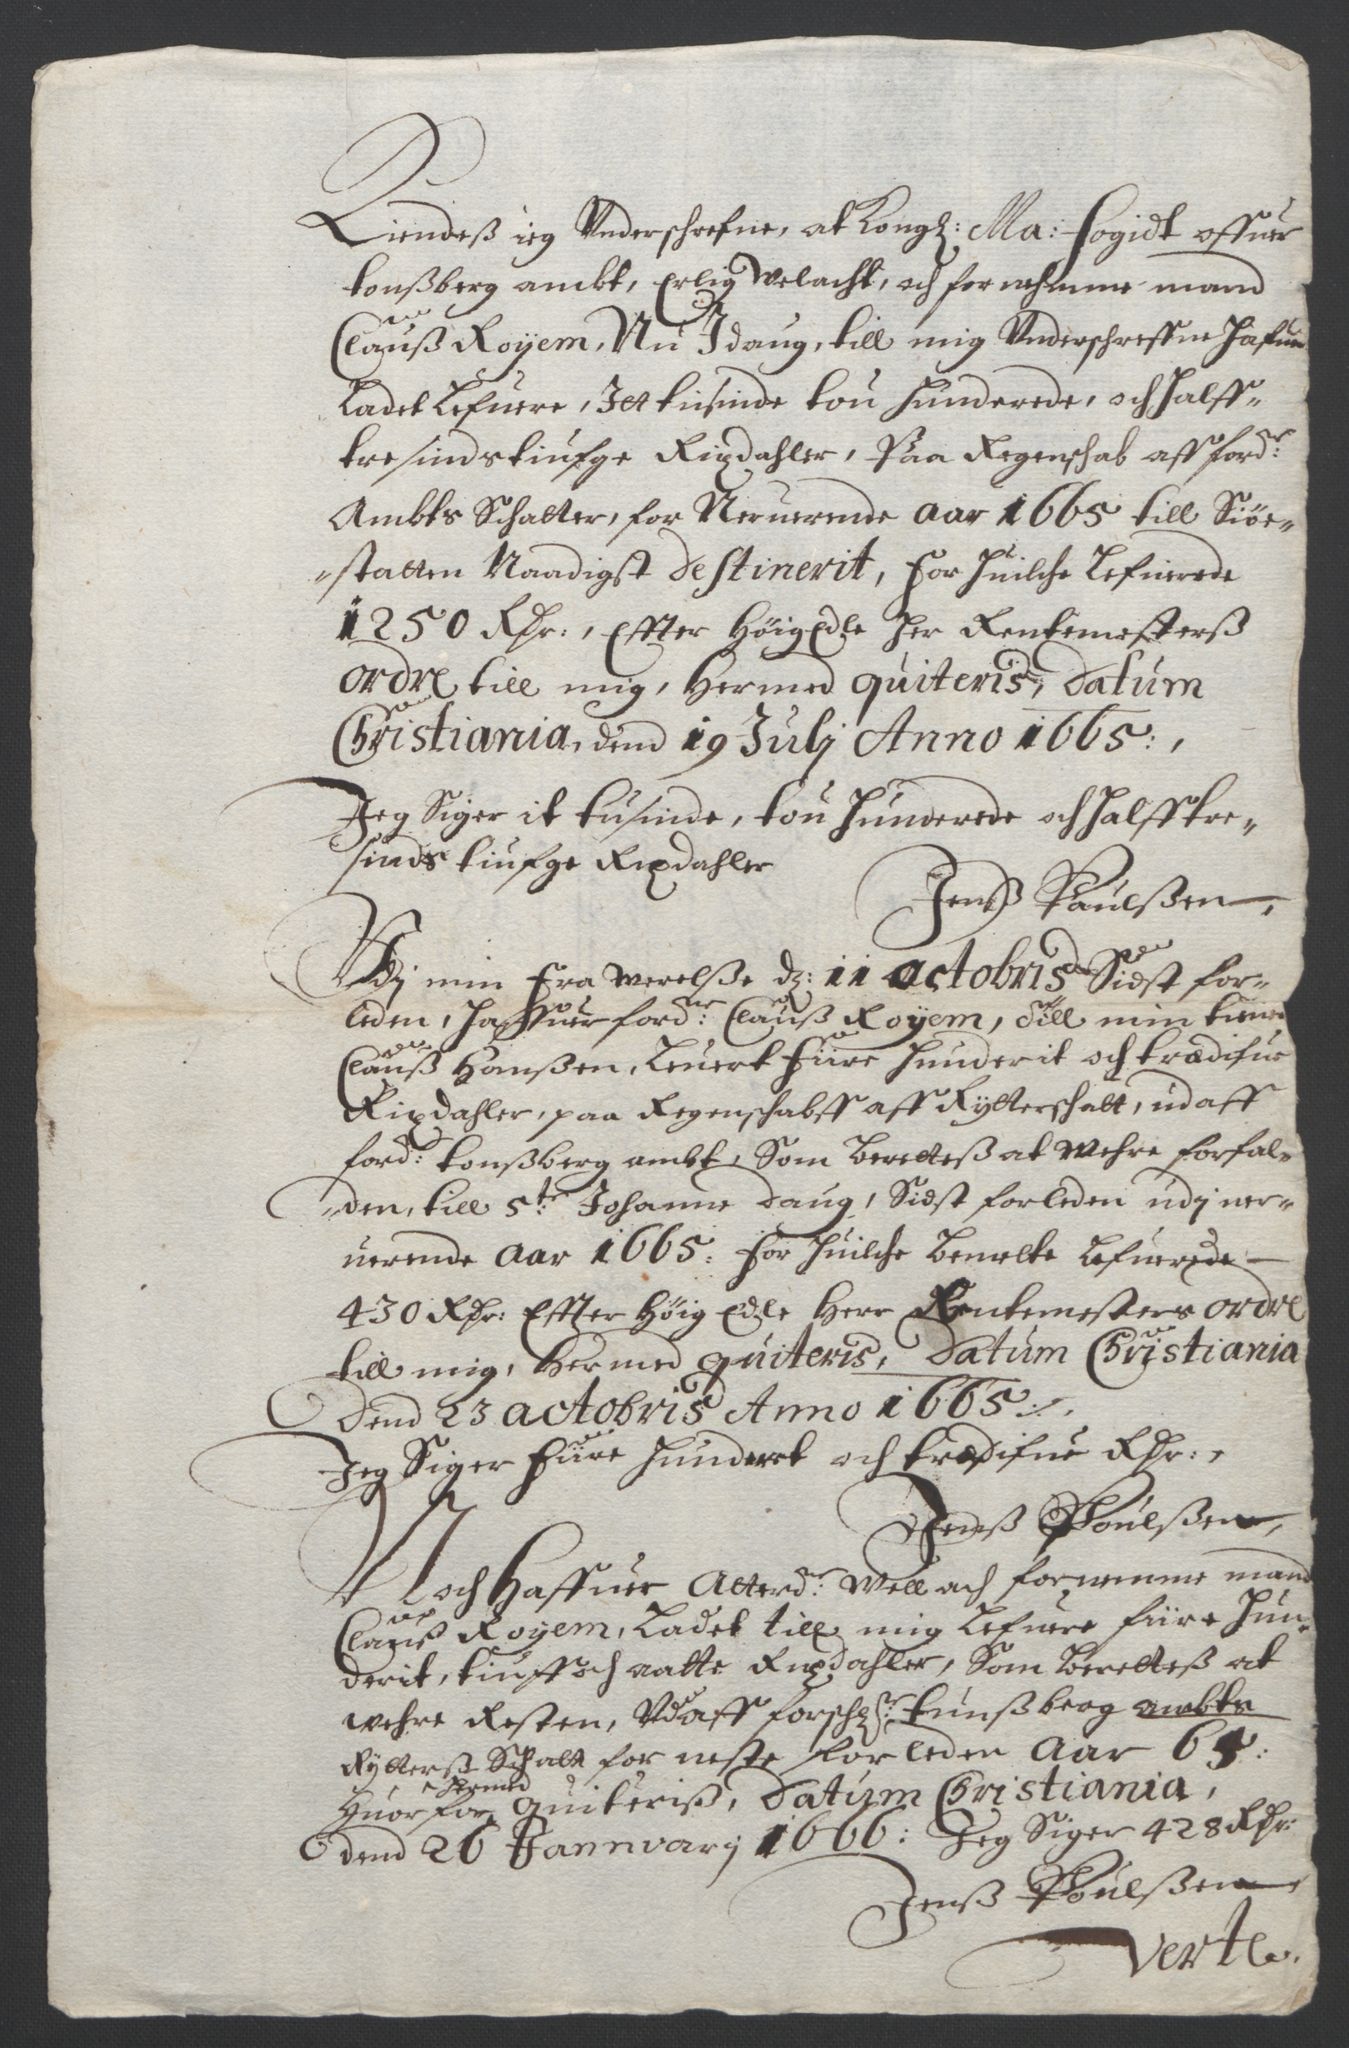 Kiendeß ieg Underschrefne, at Kongl: Ma: fogidt offuer
tonßberg ambt, Erlig Welacht, och fornehmme mand
Clauß Royem, Nu Jdaug, till mig Underschreffne Hafuer
Ladet Lefuere, Jet tusinde tou Hunderede, och Halff-
tresindstiufge Rixdahler, Paa Regenschab aff ford:r
Ambts Schatter, for Neruerende aar 1665 till Siöe-
-statten Naadigst destinerit, for Huilche Lefuerede
1250 Rdr:, Effter HöigEdle Her Rentemesterß
ordre till mig, Hermed quiteris, Datum
Christiania, dend 19 Julj Anno 1665:,
Jeg Siger it tusinde, tou Hunderede och Halfftre-
sinds tiufge Rixdahler
Jenß Paulßen,
Udj min fra werelße d: 11 octobris Sidst for-
leden, Haffuer ford:r Clauß Royem, Till min tiener
Clauß Hanßen, Leuert fiire Hunderit och trædifue
Rixdahler, paa Regenschabff aff Rytterschatt, udaff
ford: tonßberg ambt, Som berettes at wehre forfal-
-den, till S:te Johanne Daug, Sidst forleden udj ner-
uerende aar 1665: for Huilche bemelte Lefuerede
430 Rdr: Effter Höig Edle Herr Rentemesters ordre
till mig, Hermed quiteris, Datum Christiania
Dend 23 octobris Anno 1665:
Jeg Siger fiire Hundert och trædifue Rdr:,
Jenß Poulßen,
Noch Haffuer Atterd:r Well ach fornemme mand
Clauß Royem, Ladet till mig Lefuere fiire Hun-
derit, tiuff och aatte Rixdahler, Som berettes at
wehre Resten, Udaff forschr: tunßberg ambts
Rytterß Schatt for neste forleden Aar 65:
Huorfor hermed quiteriß, Datum Christiania,
dend 26 Jannvarj 1666: Jeg Siger 428 Rdr:
Jenß Poulßen
verte.